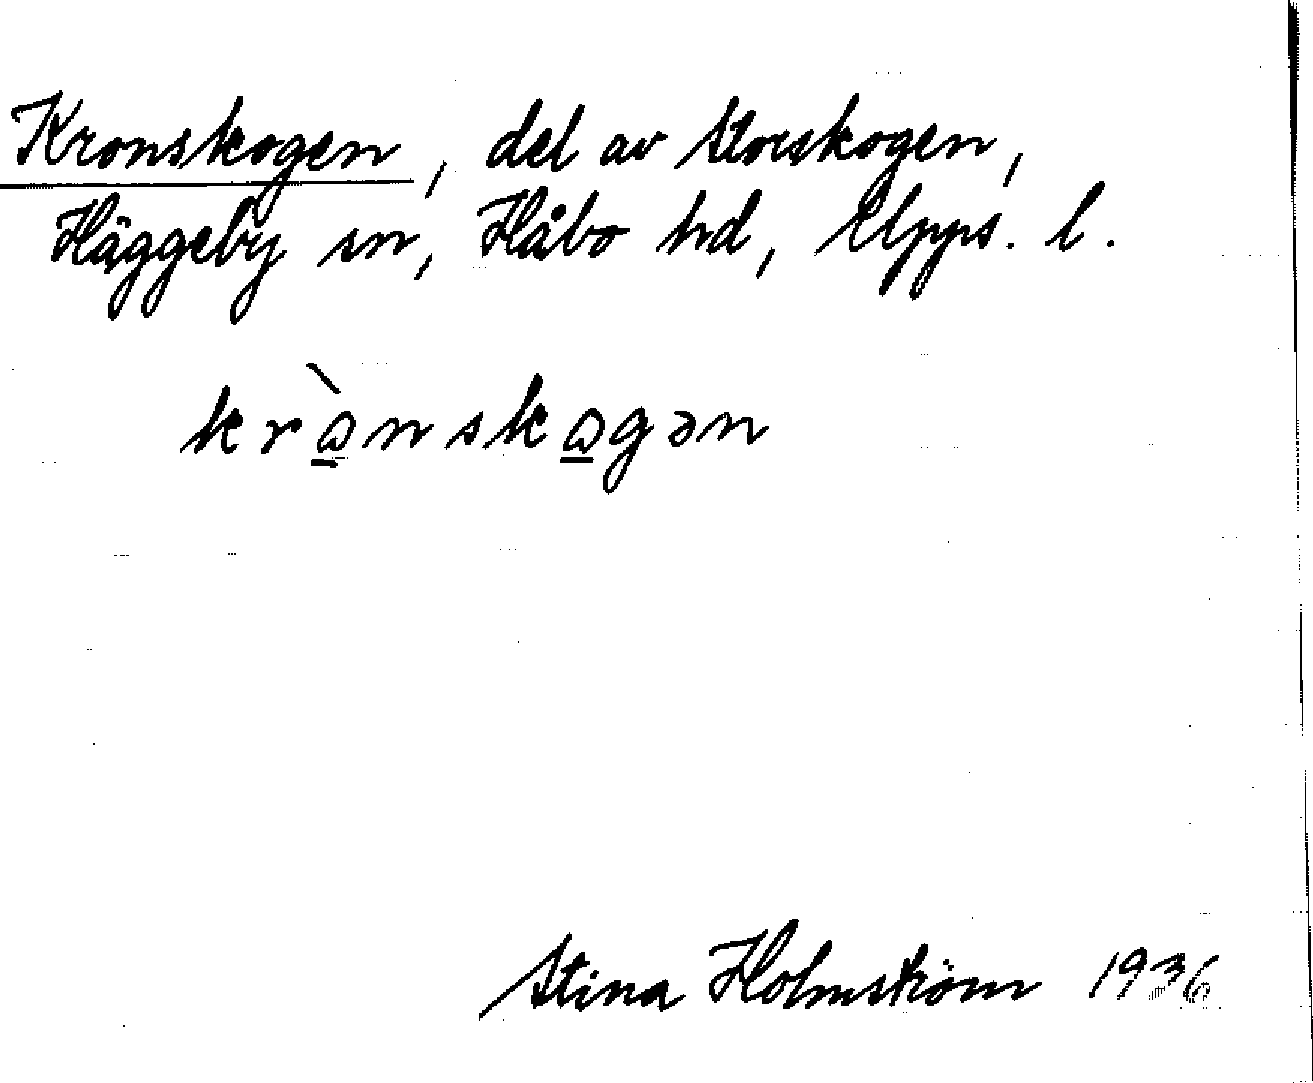 Kronskogen, del av Storskogen,
Häggeby sn, Håbo hd, Upps. l.
krò̱nsko̱gən
Stina Holmström 1936